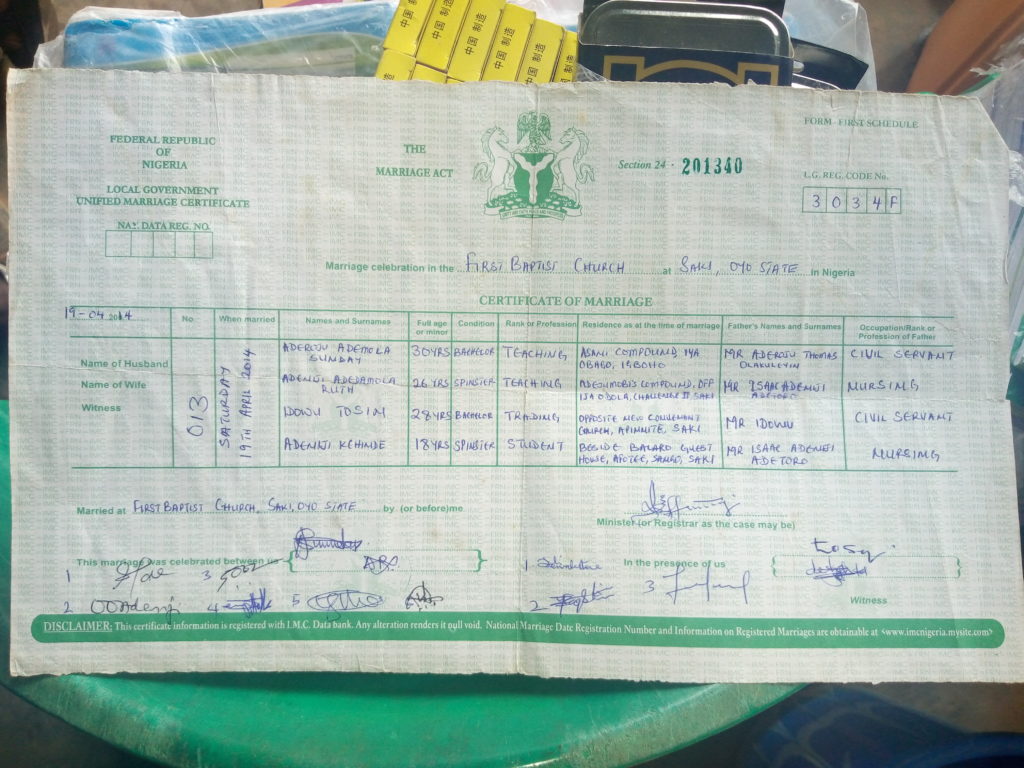 中国 制造
中国 制造
中国 制造
中国 制造
FORM - FIRST SCHEDULE
FEDERAL REPUBLIC
OF
NIGERIA
THE
MARRIAGE ACT
Section 24 - 201340
L.G. REG. CODE No.
3 0 3 4 F
LOCAL GOVERNMENT
UNIFIED MARRIAGE CERTIFICATE
NAT. DATA REG. NO.
Marriage celebration in the FIRST BAPTIST CHURCH at SAKI, OYO STATE in Nigeria
CERTIFICATE OF MARRIAGE
19-04 2014
No. When married Names and Surnames Full age or minor Condition Rank or Profession Residence as at the time of marriage Father's Names and Surnames Occupation/Rank or Profession of Father
013 SATURDAY 19TH APRIL 2014
Name of Husband ADEROJU ADEMOLA SUNDAY 30YRS BACHELOR TEACHING ASANI COMPOUND IYA OBAGO, IGBOHO MR ADEROJU THOMAS OLAKULEYIN CIVIL SERVANT
Name of Wife ADENIJI ADEDAMOLA RUTH 26 YRS SPINSTER TEACHING ADEJUMOBI'S COMPOUND, OFF ISA ODOLA, CHALLENGE II SAKI MR ISAAC ADENIJI ADETORO NURSING
Witness IDOWU TOSIN 28YRS BACHELOR TRADING OPPOSITE NEW CONVENANT CHURCH, APINNITE, SAKI MR IDOWU CIVIL SERVANT
ADENIJI KEHINDE 18YRS SPINSTER STUDENT BESIDE BALARO GUEST HOUSE, AFOTEE, SANGO, SAKI MR ISAAC ADENIJI ADETORO NURSING
Married at FIRST BAPTIST CHURCH, SAKI, OYO STATE by (or before)me
Minister (or Registrar as the case may be)
This marriage was celebrated between us
In the presence of us
Tosin
1 3
1 3
2 OOAdeniji 4 5
2
Witness
DISCLAIMER: This certificate information is registered with I.M.C. Data bank. Any alteration renders it null void. National Marriage Date Registration Number and Information on Registered Marriages are obtainable at <www.imcnigeria.mysite.com>